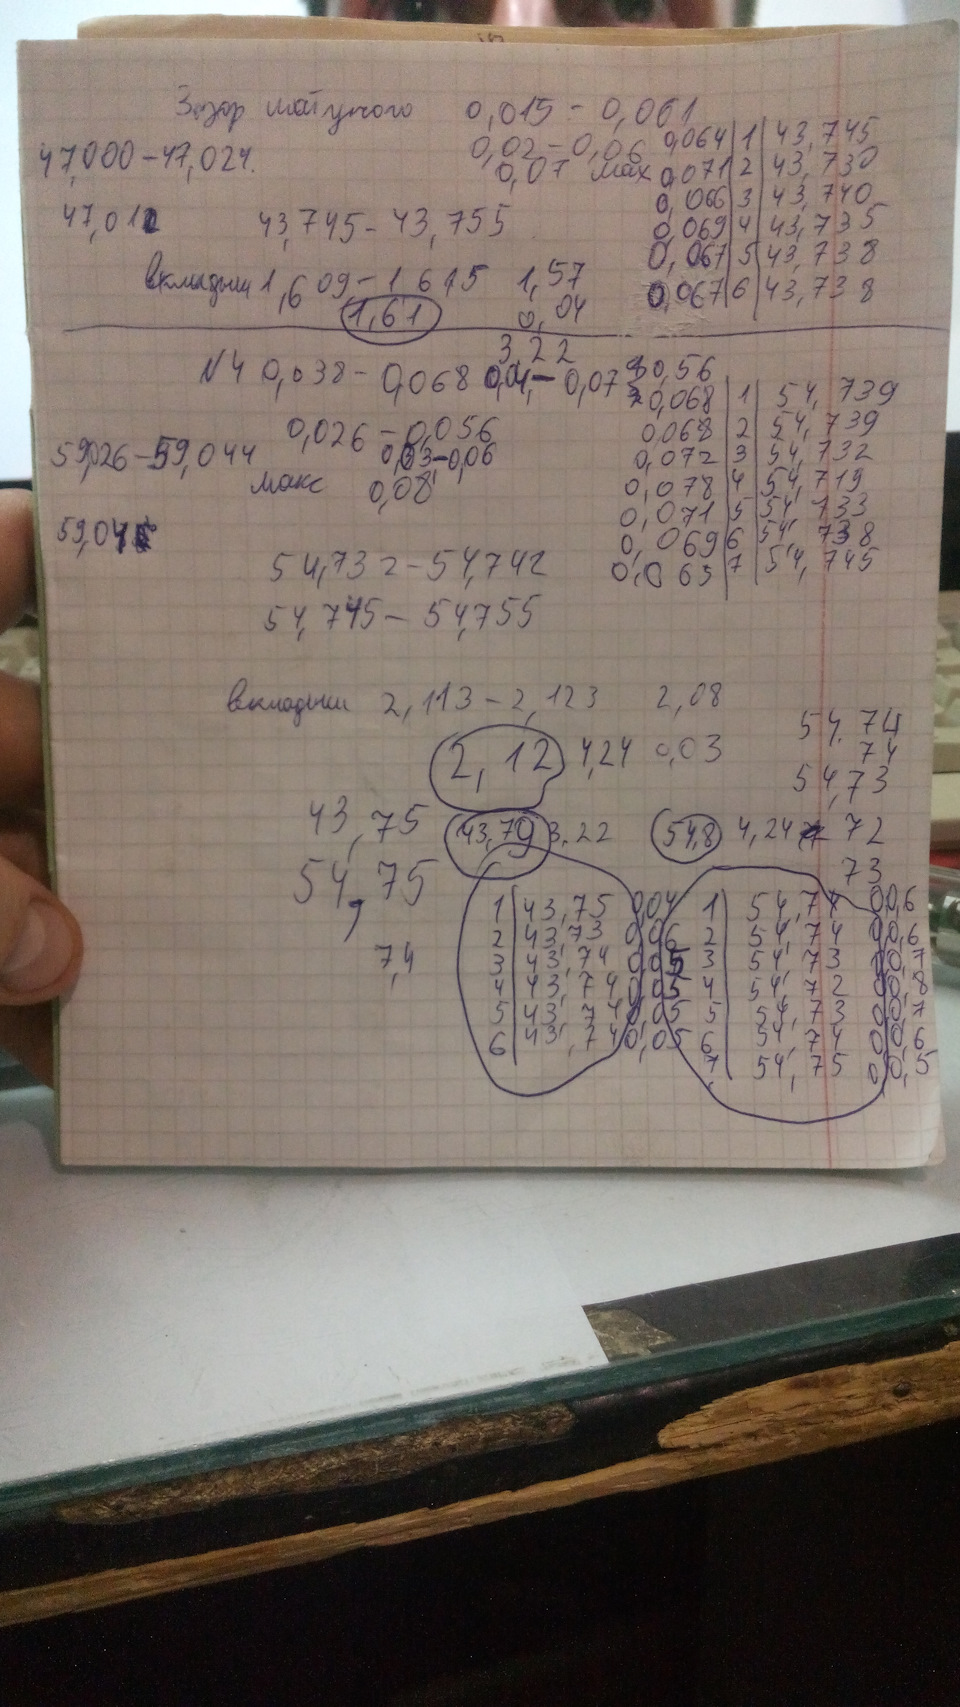 Зазор шатунного 0,015 - 0,061
47,000 - 47,024. 0,02 - 0,06
0,07 мах
0,064 | 1 | 43,745
0,071 | 2 | 43,730
0,066 | 3 | 43,740
0,069 | 4 | 43,735
0,067 | 5 | 43,738
0,067 | 6 | 43,738
47,01 43,745 - 43,755
вкладыш 1,609 - 1,615 1,57
1,61 0,04
3,22
N4 0,038 - 0,068 0,04 - 0,07
0,56
0,068 | 1 | 54,739
0,068 | 2 | 54,739
0,072 | 3 | 54,732
0,078 | 4 | 54,719
0,071 | 5 | 54,733
0,069 | 6 | 54,738
0,065 | 7 | 54,745
0,026 - 0,056
59,026 - 59,044 0,03 - 0,06
макс 0,08
59,04
54,732 - 54,742
54,745 - 54,755
вкладыш 2,113 - 2,123 2,08
2,12 4,24 0,03
54,74
74
54,73
72
73
43,75 43,79 3,22 54,8 4,24
54,75
7,4
1 | 43,75 0,04
2 | 43,73 0,06
3 | 43,74 0,05
4 | 43,74 0,05
5 | 43,74 0,05
6 | 43,74 0,05
1 | 54,74 00,6
2 | 54,74 00,6
3 | 54,73 00,7
4 | 54,72 00,8
5 | 54,73 00,7
6 | 54,74 00,6
7 | 54,75 00,5